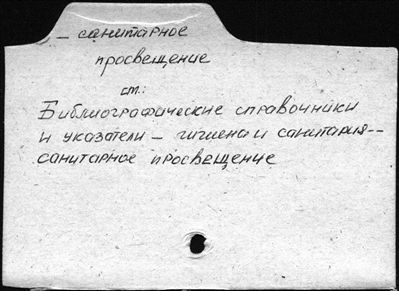 — санитарное
просвещение
ст.:
Библиографические справочники
и указатели — гигиена и санитария --
санитарное просвещение